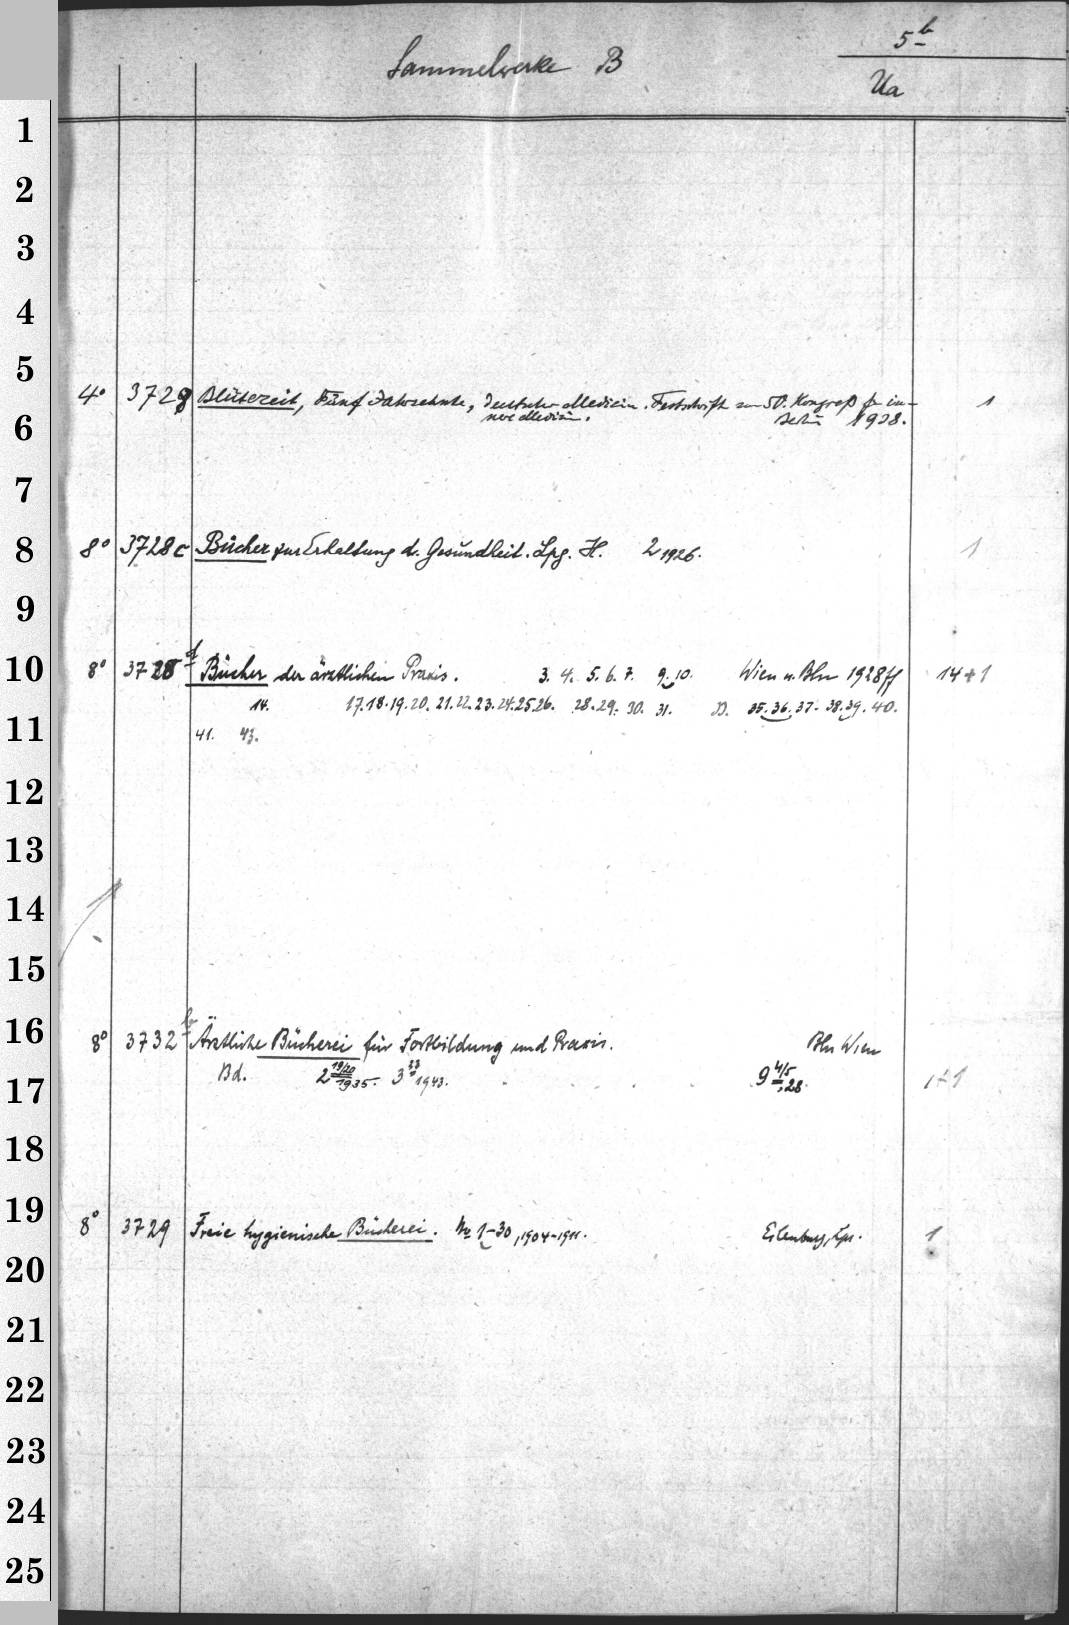 5b
Sammelwerke B
Ua
1
2
3
4
5
4° 3728 Blütezeit, Fünf Jahrzehnte, deutscher Medizin. Festschrift zum 50. Kongreß f. in- 1
nere Medizin. Berlin 1938.
6
7
8 8° 3728c Bücher zur Erhaltung d. Gesundheit. Lpg. H. 2 1926. 1
9
10 8° 3728d Bücher der ärztlichen Praxis. 3. 4. 5. 6. 7. 9. 10. Wien u. Bln 1928ff 14+1
14. 17. 18. 19. 20. 21. 22. 23. 24. 25. 26. 28. 29. 30. 31. 33. 35. 36. 37. 38. 39. 40.
11 41. 43.
12
13
14
15
16 8° 3732b Ärztliche Bücherei für Fortbildung und Praxis. Bln Wien
17 Bd. 2 19/20 1935. 3 23 1943. 9 4/5, 28. 1+1
18
19 8° 3729 Freie hygienische Bücherei. No 1-30, 1904-1911. Eilenburg, Lpz. 1
20
21
22
23
24
25